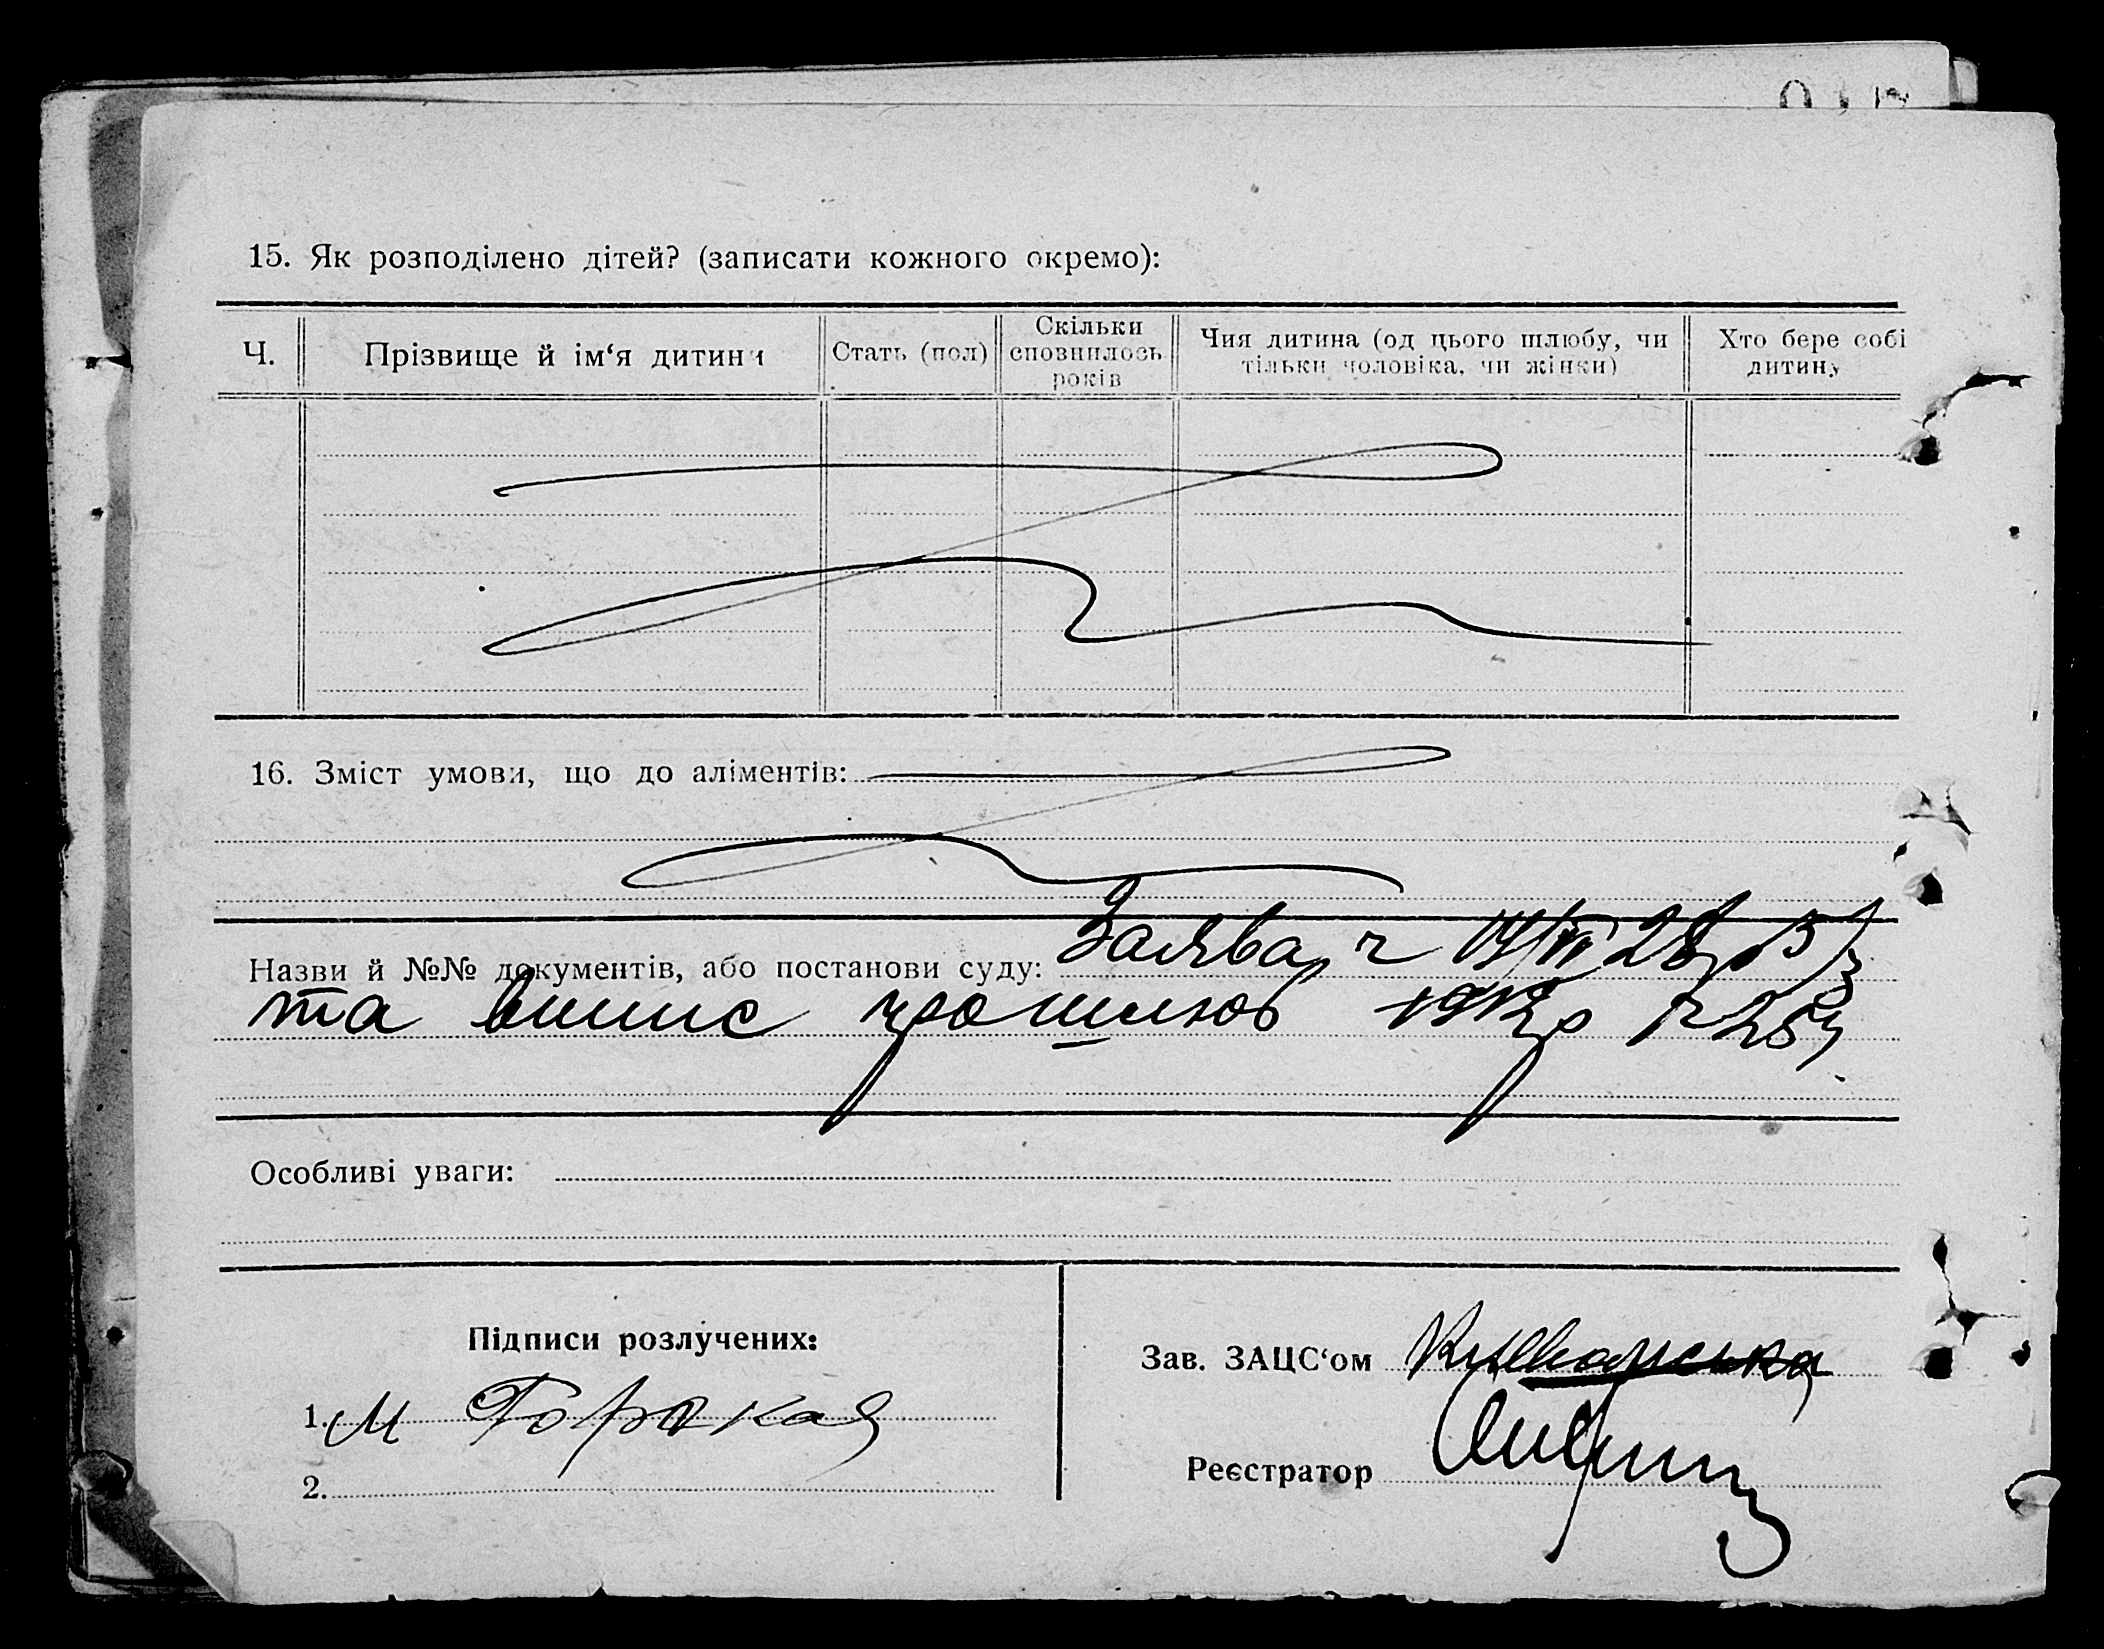 15. Як розподілено дітей? (записати кожного окремо):
Ч. Прізвище й ім‘я дитини Стать (пол) Скільки сповнилось років Чия дитина (од цього шлюбу, чи тільки чоловіка, чи жінки) Хто бере собі дитину
16. Зміст умови, що до аліментів:
Назви й №№ документів, або постанови суду: Заява
та випис про шлюб 1912р
Особливі уваги:
Підписи розлучених:
1. М Горокая
2.
Зав. ЗАЦС‘ом
Реєстратор